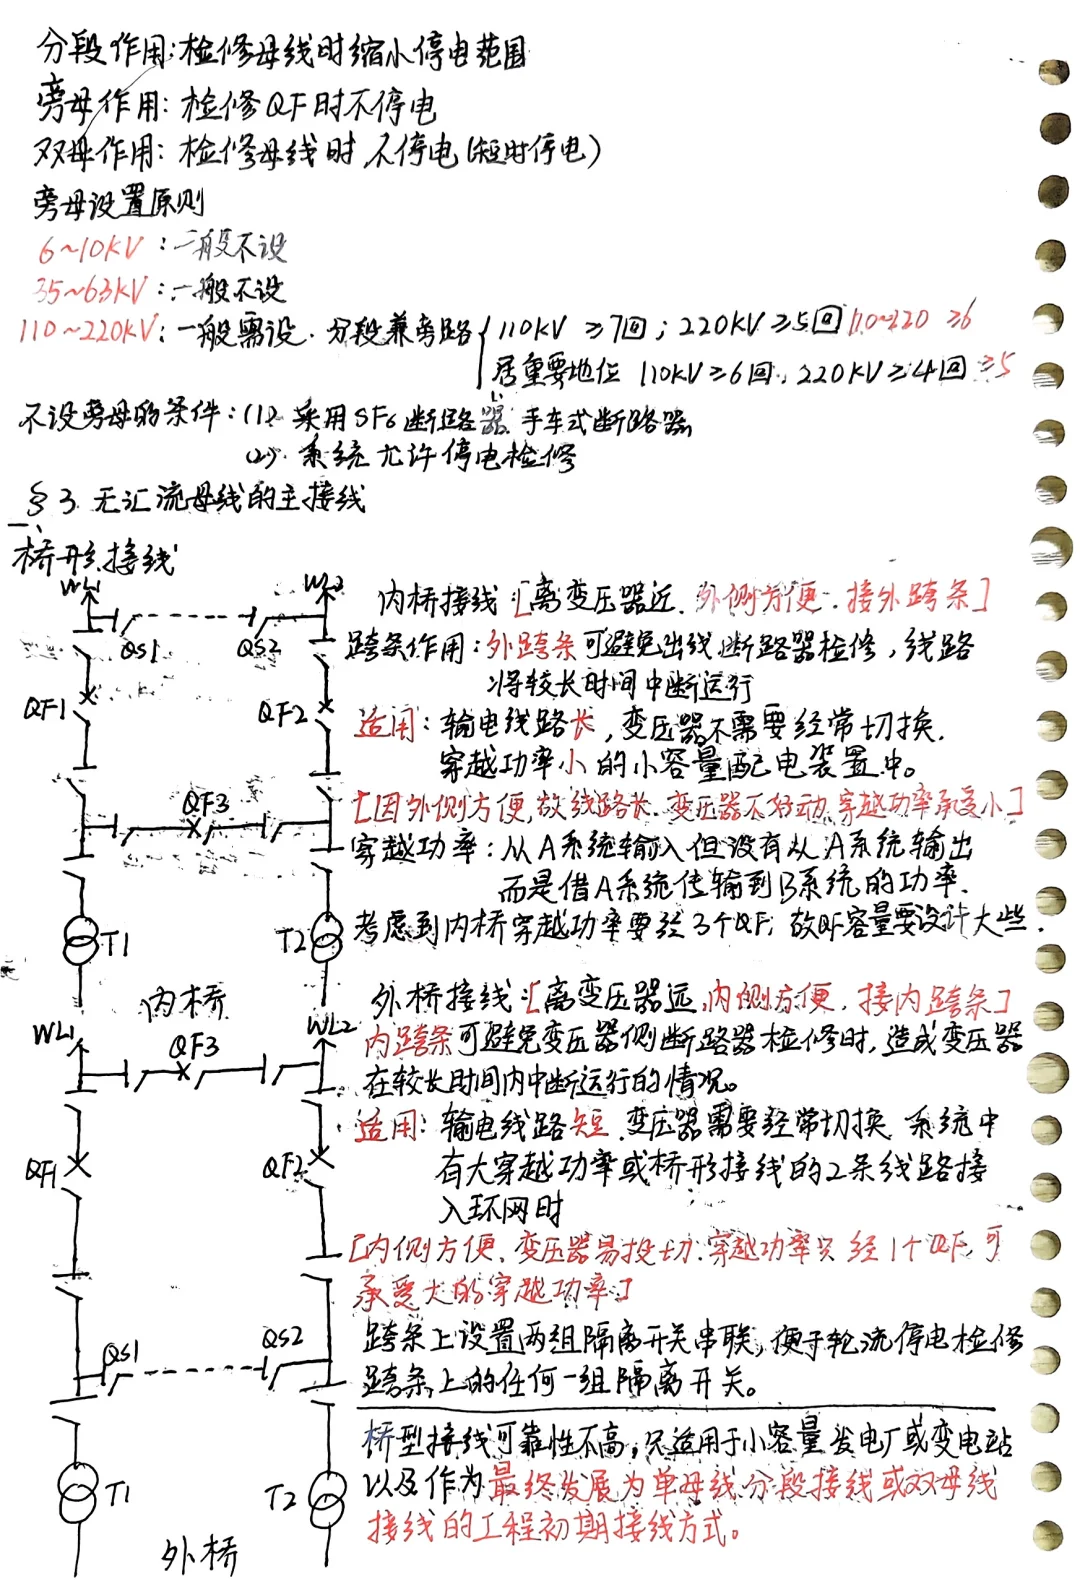 分段作用:检修母线时缩小停电范围
旁母作用:检修QF时不停电
双母作用:检修母线时不停电(短时停电)
旁母设置原则
6~10KV:一般不设
35~63KV:一般不设
110~220KV:一般需设.分段兼旁路{110KV ≥7回;220KV ≥5回 110~220 ≥6
居重要地位 110KV≥6回,220KV≥4回 ≥5
不设旁母的条件:(1)采用SF6断路器、手车式断路器
(2)系统允许停电检修
§3 无汇流母线的主接线
一、
桥形接线
WL1 WL2
内桥接线:[离变压器近.外侧方便.接外跨条]
QS1 QS2
跨条作用:外跨条可避免出线断路器检修,线路
将较长时间中断运行
QF1 QF2
适用:输电线路长,变压器不需要经常切换.
穿越功率小的小容量配电装置中。
QF3
[因外侧方便,故线路长.变压器不好动,穿越功率承受小]
穿越功率:从A系统输入但没有从A系统输出
而是借A系统传输到B系统的功率.
T1 T2
考虑到内桥穿越功率要经3个QF,故QF容量要设计大些.
内桥
外桥接线:[离变压器远,内侧方便.接内跨条]
WL1 WL2
QF3
内跨条可避免变压器侧断路器检修时,造成变压器
在较长时间内中断运行的情况。
适用:输电线路短.变压器需要经常切换 系统中
QF1 QF2
有大穿越功率或桥形接线的2条线路接
入环网时
[内侧方便.变压器易投切.穿越功率只经1个QF,可
承受大的穿越功率]
QS1 QS2
跨条上设置两组隔离开关串联,便于轮流停电检修
跨条上的任何一组隔离开关。
桥型接线可靠性不高,只适用于小容量发电厂或变电站
T1 T2
以及作为最终发展为单母线分段接线或双母线
接线的工程初期接线方式。
外桥